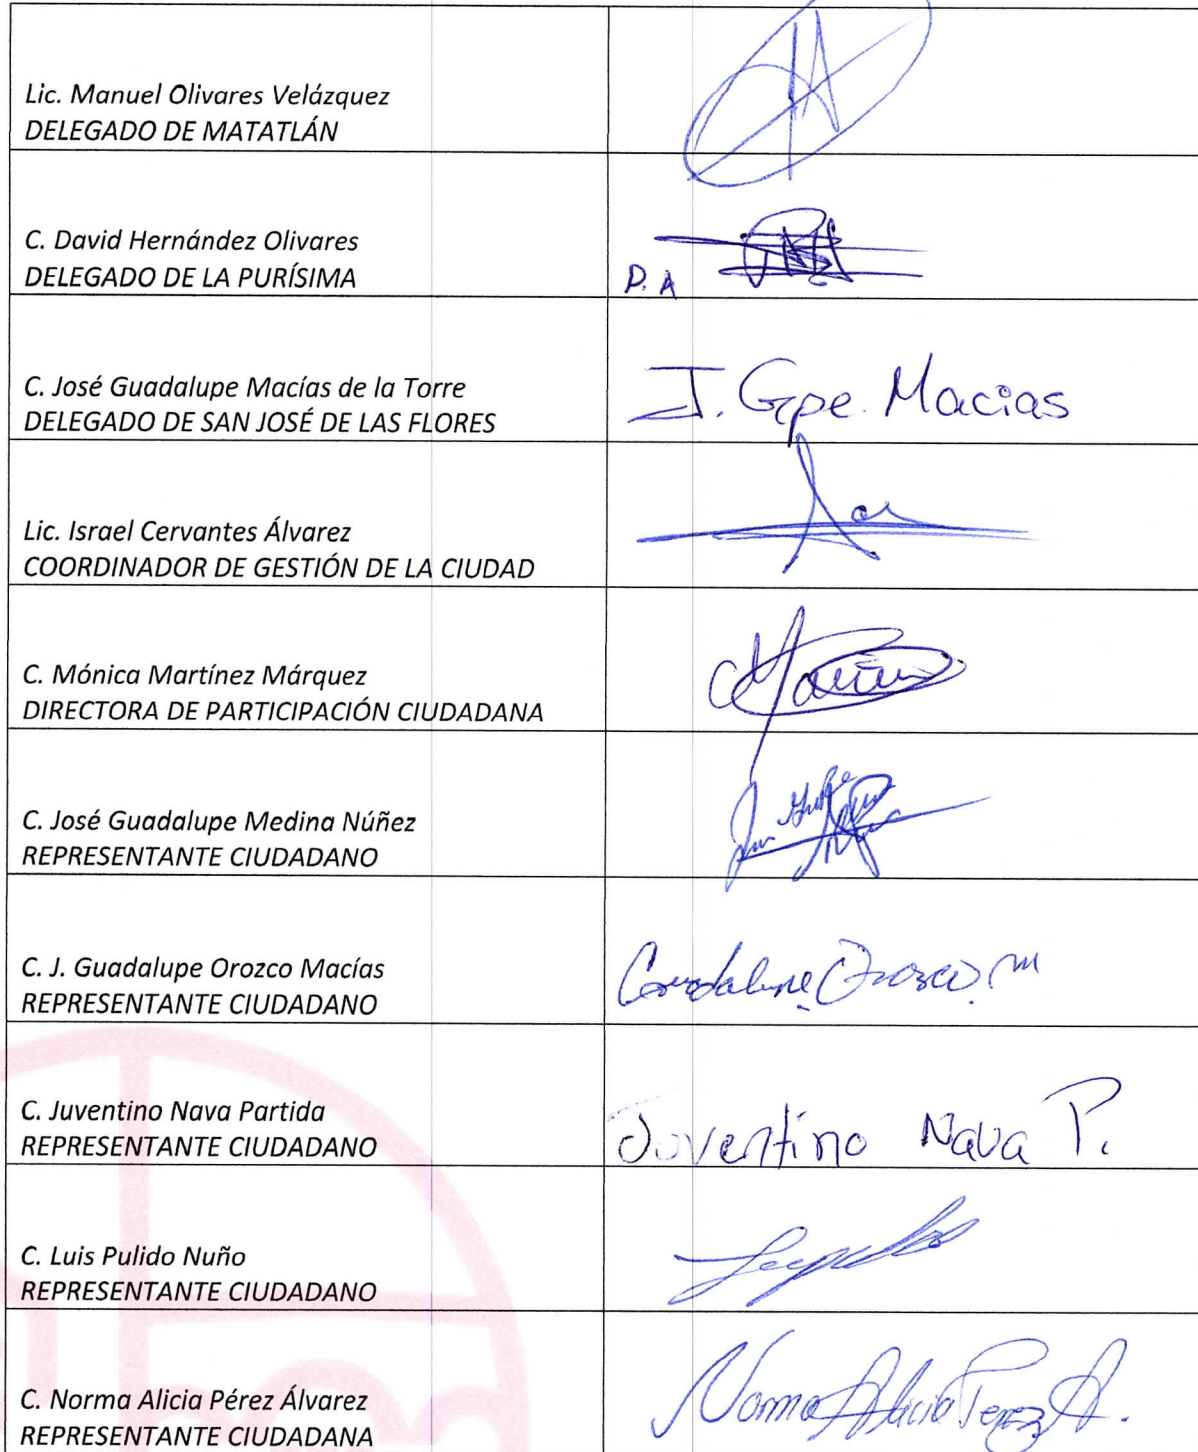 Lic. Manuel Olivares Velázquez
DELEGADO DE MATATLÁN
C. David Hernández Olivares
DELEGADO DE LA PURÍSIMA
P. A
C. José Guadalupe Macías de la Torre
DELEGADO DE SAN JOSÉ DE LAS FLORES
J. Gpe. Macias
Lic. Israel Cervantes Álvarez
COORDINADOR DE GESTIÓN DE LA CIUDAD
C. Mónica Martínez Márquez
DIRECTORA DE PARTICIPACIÓN CIUDADANA
C. José Guadalupe Medina Núñez
REPRESENTANTE CIUDADANO
C. J. Guadalupe Orozco Macías
REPRESENTANTE CIUDADANO
Guadalupe Orozco M
C. Juventino Nava Partida
REPRESENTANTE CIUDADANO
Juventino Nava P.
C. Luis Pulido Nuño
REPRESENTANTE CIUDADANO
C. Norma Alicia Pérez Álvarez
REPRESENTANTE CIUDADANA
Norma Alicia Perez A.